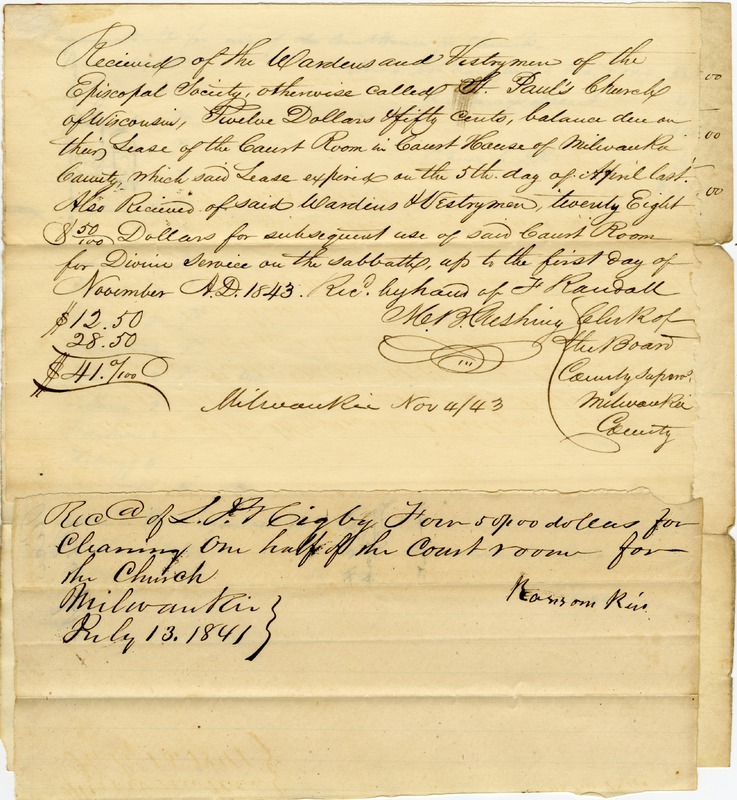 Recieved of the Wardens and Vestrymen of the
Episcopal Society, otherwise called St. Paul's Church
of Wisconsin, Twelve Dollars & fifty cents, balance due on
their Lease of the Court Room in Court House of Milwauka
County, which said Lease expired on the 5th. day of April last.
Also Recieved of said Wardens & Vestrymen, twenty Eight
$ 50/100 Dollars for subsequent use of said Court Room
for Divine Service on the sabbath, up to the first day of
November A.D. 1843. Recd. by hand of F Randall
$12.50
28.50
$41.0/100
M. B. Cushing Clerk of
the Board
County Supervs.
Milwaukie
County
Milwaukie Nov 4/43
00
00
00
Recd of L. J. Higby Four 50/00 dollars for
Cleaning One half of the Court room for
the Church
Milwaukie
July 13. 1841
Ransom